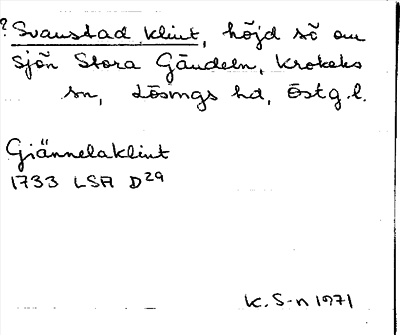 ? Svanstad klint, höjd sö om
sjön Stora Gäddeln, Krokeks
sn, Lösings hd, Östg.l.
Giännelaklint
1733 LSA D29
K. S-n 1971